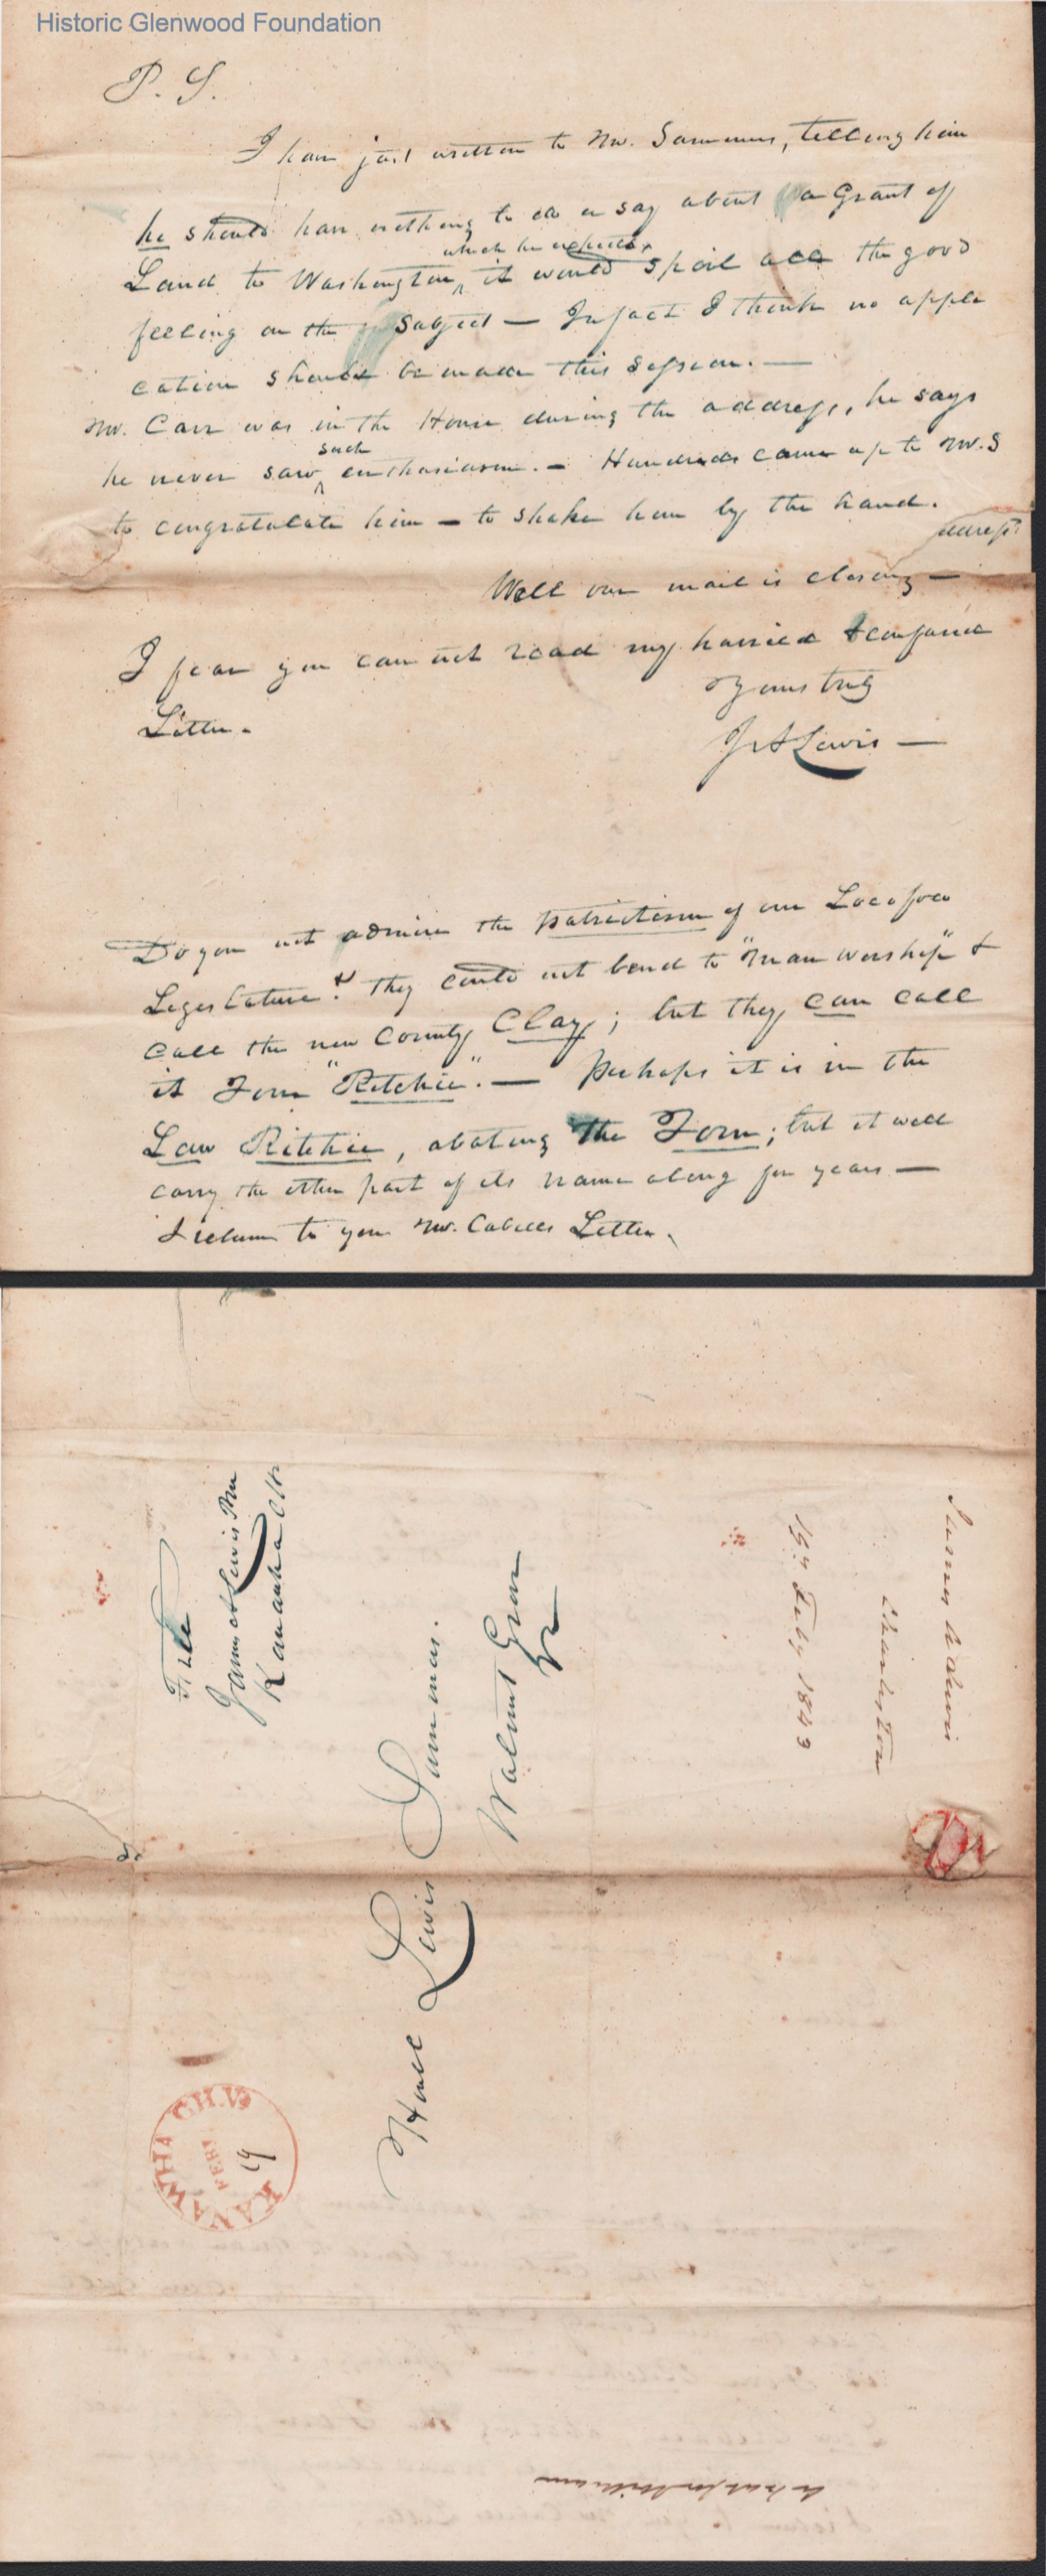 Historic Glenwood Foundation
P. S.
I have just written to Mr. Summers, telling him
he should have nothing to do or say about a Grant of
which he expects
Land to Washington, it would spoil all the good
feeling on the subject — In fact I think no appli
cation should be made this Session. —
Mr. Carr was in the House during the address, he says
such
he never saw enthusiasm. — Hundreds came up to Mr. S
to congratulate him — to shake him by the hand.
address
Well our mail is closing —
I fear you can not read my hurried & confused
Letter.
Yours truly
J A Lewis —
Do you not admire the patriotism of our Locofoco
Legislature? They could not bend to "man worship" &
call the new County Clay; but they can call
it Tom "Ritchie". — Perhaps it is in the
Law Ritchie, abating the Tom; but it will
carry the other part of its name along for years —
I return to you Mr. Cabells Letter.
Free
James A Lewis PM
Kanawha CH
Honl Lewis Summers.
Walnut Grove
Va
James A Lewis
Charleston
19th Feby 1843
KANAWHA C.H. Va
FEB
19